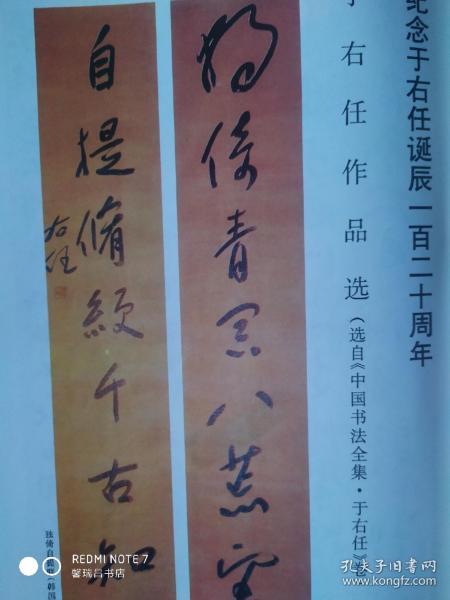 纪念于右任诞辰一百二十周年
于右任作品选(选自《中国书法全集·于右任》
獨倚青冥八荒望
自提脩綆千古知
右任
独倚自
(韩国
REDMI NOTE 7
馨瑞昌书店
孔夫子旧书网